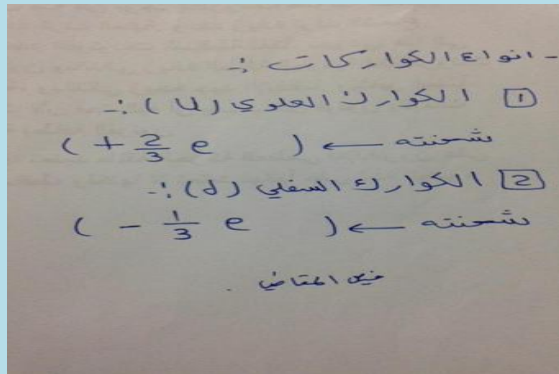 - انواع الكواركات :-
1 الكوارك العلوي (u) :-
شحنته ← ( + 2/3 e )
2 الكوارك السفلي (d) :-
شحنته ← ( - 1/3 e )